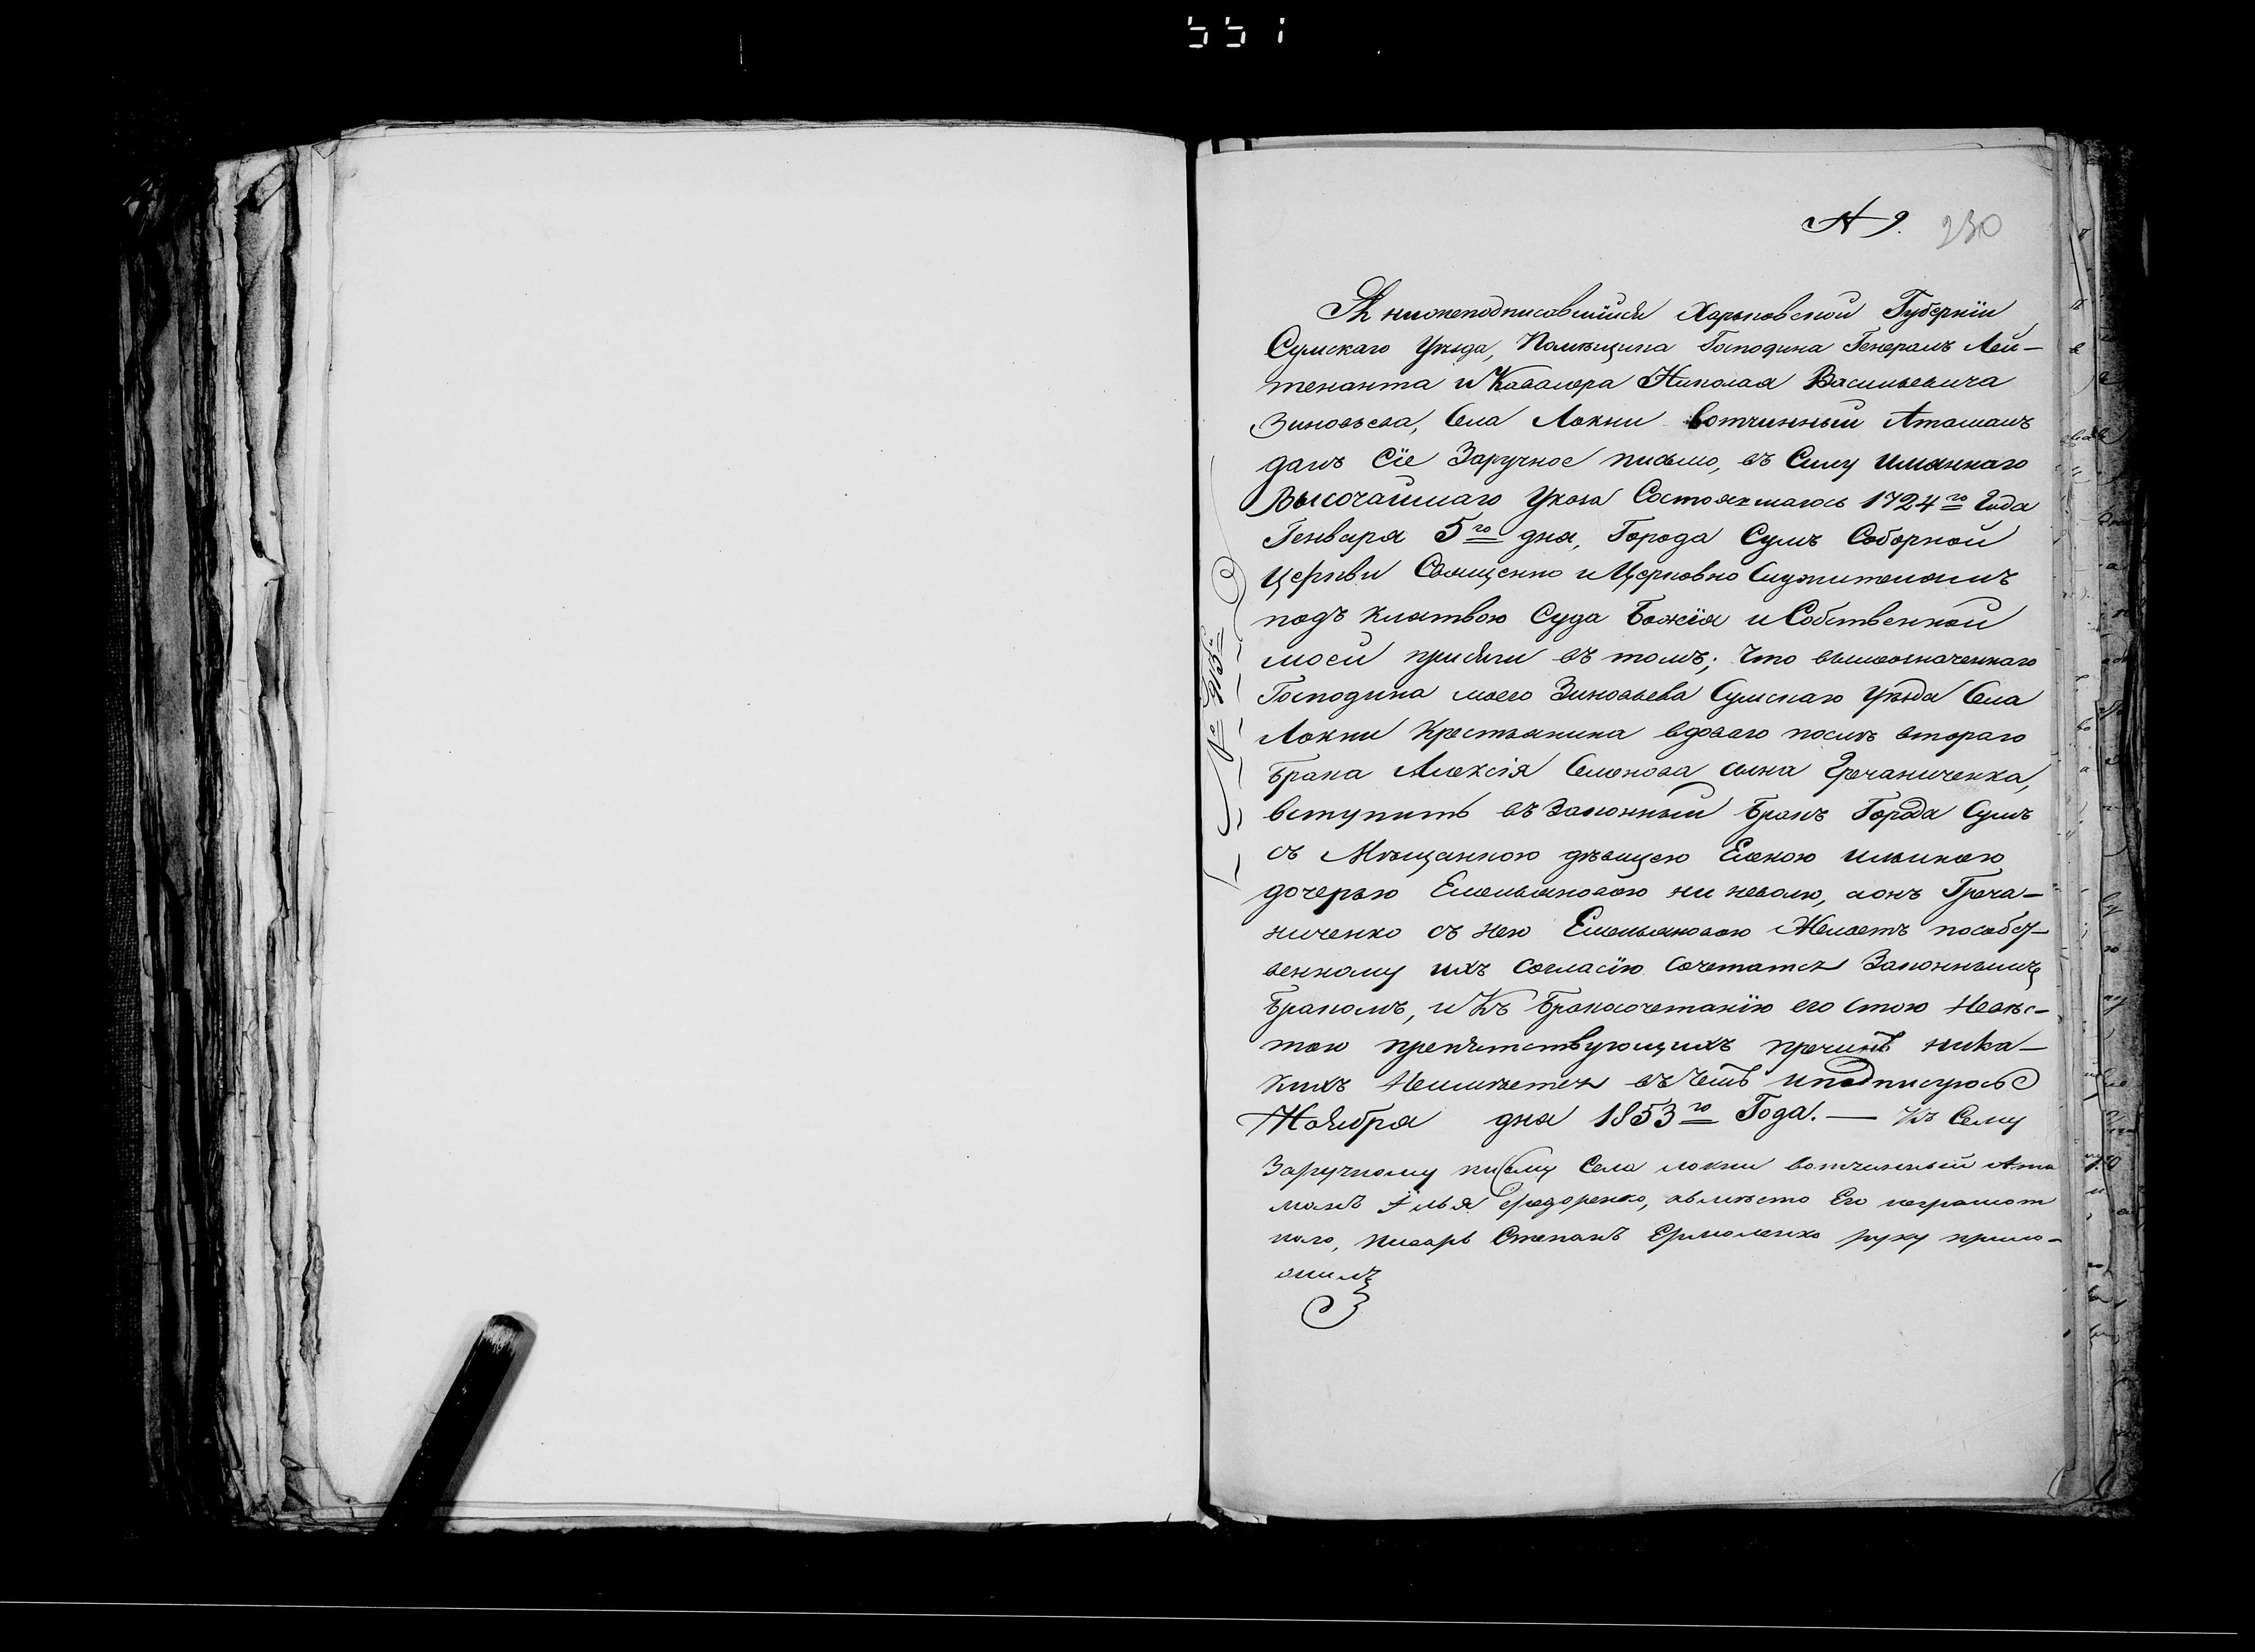 551
№ 9. 230
Я нижеподписавшійся Харьковской Губерніи
Сумскаго Уезда, Помещика Господина Генералъ Лей-
тенанта и Кавалера Николая Васильевича
Зиновьева, Села Локни вотчинный Атаманъ
далъ Сіе Заручное письмо, въ Силу имяннаго
Высочайшаго Указа Состоявшагося 1724го Года
Генваря 5го дня, Города Сумъ Соборной
Церкви Священно и Церковно Служителямъ
подъ клятвою Суда Божія и Собственной
моей присяги въ томъ; Что вышеозначеннаго
Господина моего Зиновьева Сумскаго Уезда Села
Локни Крестьянина вдоваго послъ втораго
брака Алексія Семенова сына Гречаниченка,
вступить въ Законный бракъ Города Сумъ
съ Мъщанкою дъвицею Еленою ильиною
дочерью Емельяновою ни неволю, а онъ Греча-
ниченко съ нею Емельяновою Желаетъ пособст-
венному ихъ согласію Сочетатся Законнымъ
бракомъ, и Къ бракосочетанію его стою Невъс-
тою препятствующихъ причинъ ника-
кихъ Неимъется въ чемъ и подписуюсь
Ноября дня 1853го Года. — Къ Сему
Заручному письму Села локни вотчинный Ата
манъ Илья Федоренко, авмъсто Его неграмот
наго, писарь Степанъ Ермоленко руку прило-
жилъ